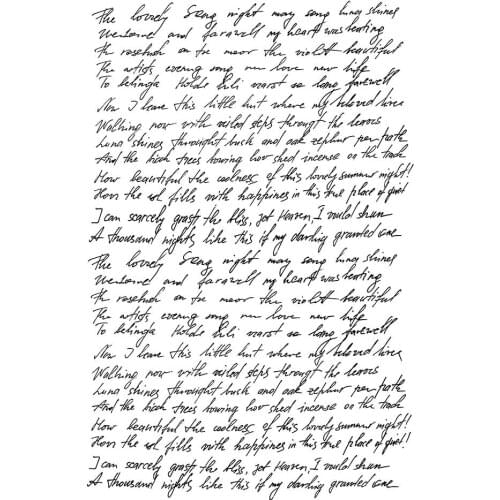 The lovely Song night may song luna shines
Welcome and farewell my heart was beating
the rosebush on the moor the violet beautiful
The artists evening song new love new life
To belinda Holde Lili warst so long farewell
Now I leave this little hut where my beloved lives
Walking now with veiled steps through the leaves
Luna shines throught bush and oak zephyr per path
And the birch trees bowing low shed incense on the track
How beautiful the coolness of this lovely summer night!
How the soul fills with happiness in this true place of quiet!
I can scarcely grasp the bliss, yet Heaven, I would shun
A thousand nights like this if my darling granted one
The lovely Song night may song luna shines
Welcome and farewell my heart was beating
the rosebush on the moor the violet beautiful
The artists evening song new love new life
To belinda Holde Lili warst so long farewell
Now I leave this little hut where my beloved lives
Walking now with veiled steps through the leaves
Luna shines throught bush and oak zephyr per path
And the birch trees bowing low shed incense on the track
How beautiful the coolness of this lovely summer night!
How the soul fills with happiness in this true place of quiet!
I can scarcely grasp the bliss, yet Heaven, I would shun
A thousand nights like this if my darling granted one